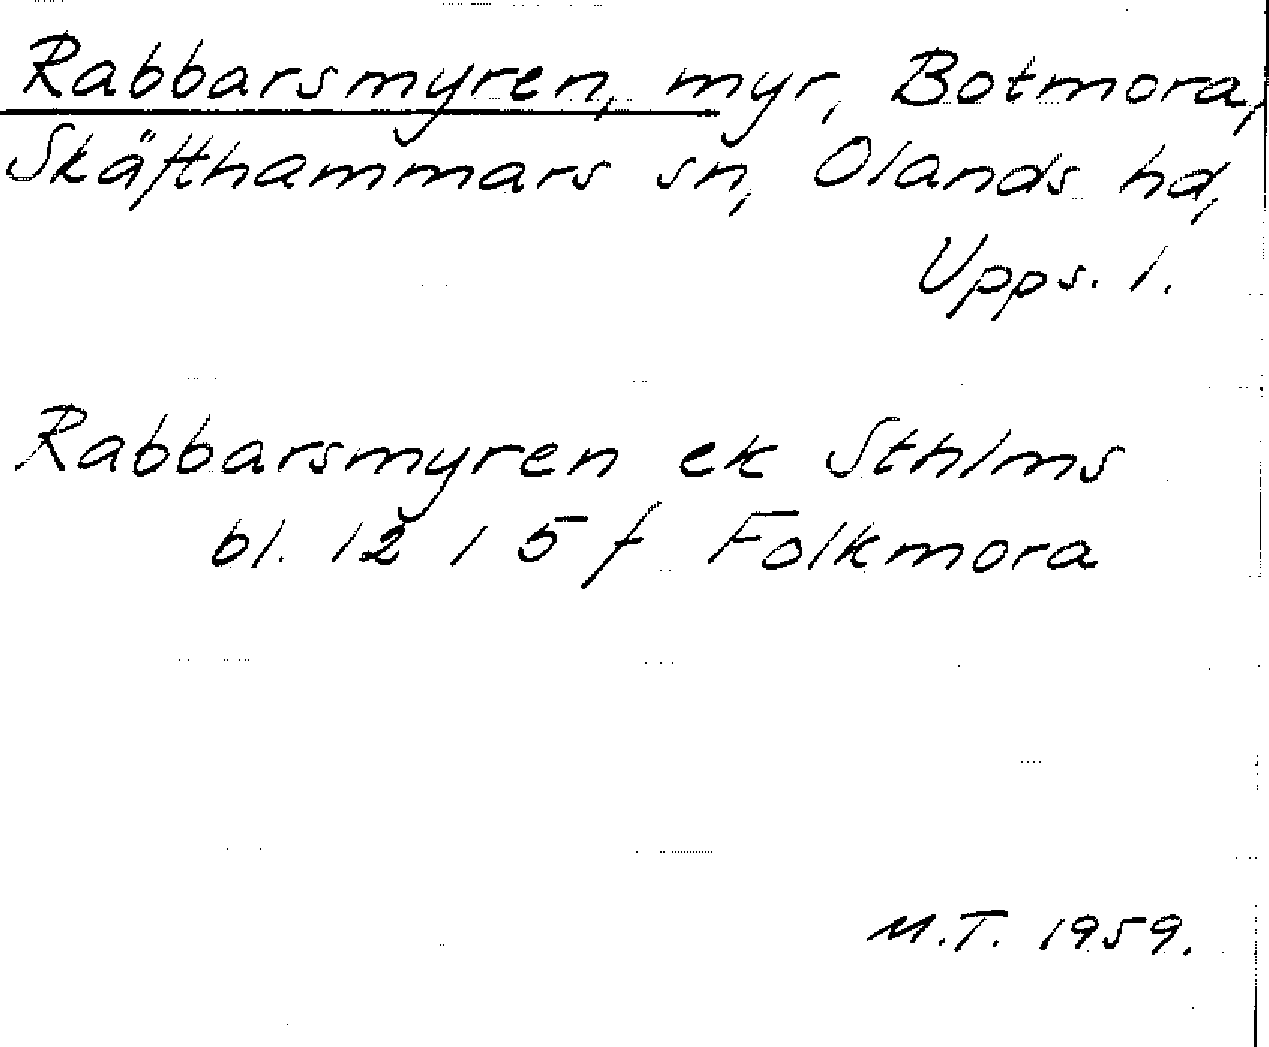 Rabbarsmyren, myr, Botmora,
Skäfthammars sn, Olands hd,
Upps. l.
Rabbarsmyren ek Sthlms
bl. 12 1 5 f Folkmora
M.T. 1959.